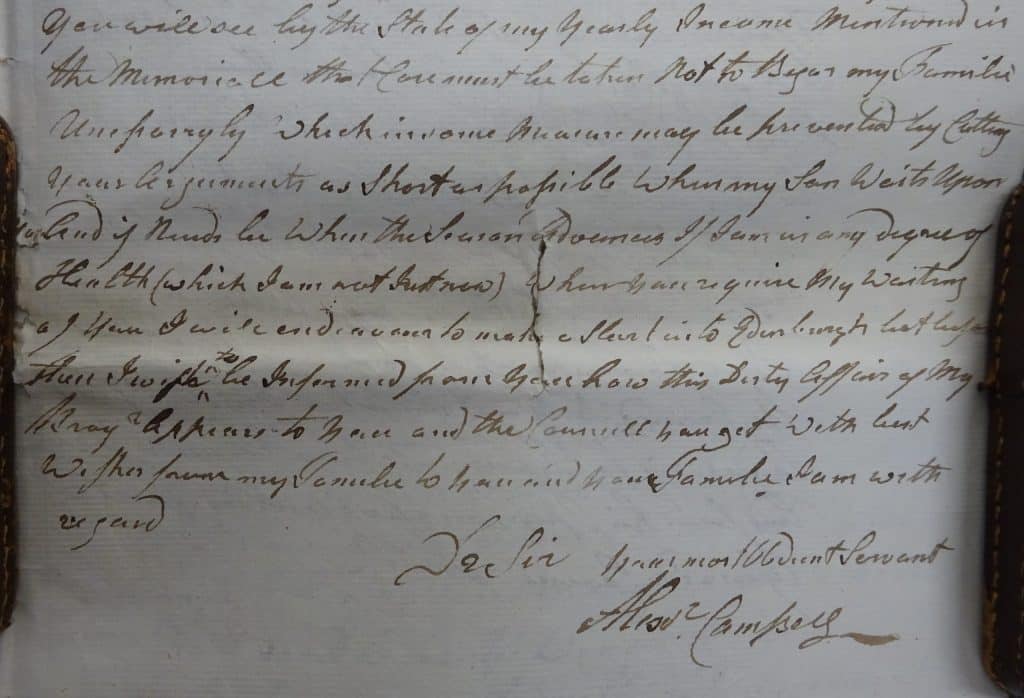 You will see by the State of my Yearly Income Mentioned in
the Memoriall that Care must be taken Not to Begar my Familie
Unsparingly Which in some Measure may be prevented by Cutting
Your Arguments as Short as possible When my Son Waits Upon
you And if Needs be When the Season advances If I am in any degree of
Health (which I am not Just now) When you require My Waiting
of You I will endeavour to make a Start into Edinburgh but before
then I wish to be Informed from You how this Dirty Affair of My
Broyr Appears to You and the Counsell you get With best
Wishes from my Familie to you and your Familie I am with
regard
Dr Sir your most Obdient Servant
Alexr. Campbell